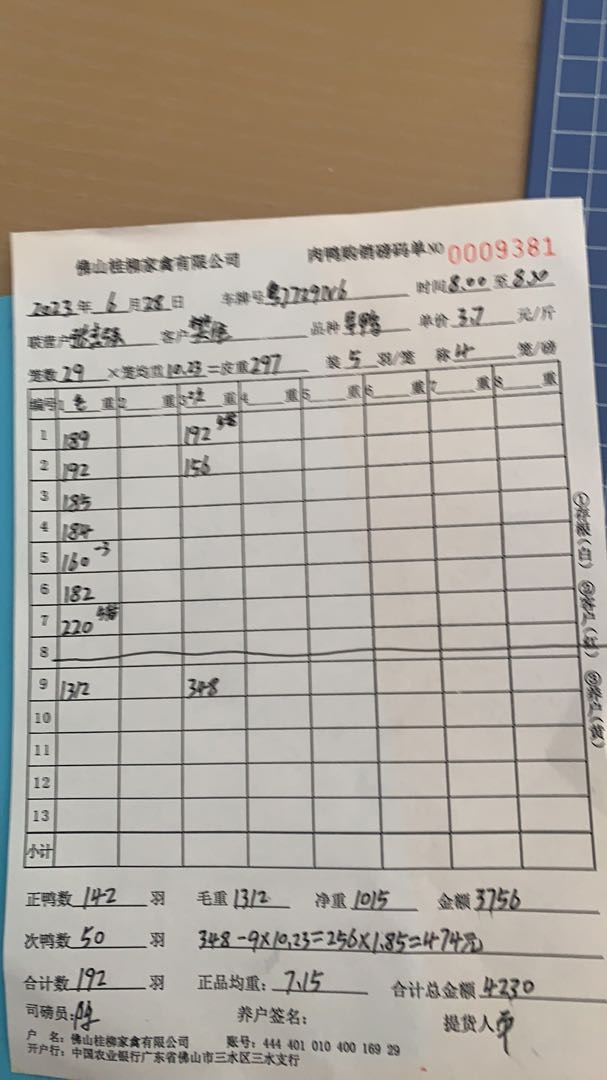 佛山桂柳家禽有限公司 肉鸭购销磅码单 NO 0009381
2023年 6月28日 车牌号 时间8.00至8.30
联营户 客户 品种 单价3.7元/斤
笼数29×笼均重10.23=皮重297 装5羽/笼 称4笼/磅
编号 1毛重 2重 3次重 4重 5重 6重 7重 8重
1 189 192
2 192 156
3 185
4 184
5 160-3
6 182
7 220
8
9 1312 348
10
11
12
13
小计
①存根(白) ②客户(红) ③养户(黄)
正鸭数142羽 毛重1312 净重1015 金额3756
次鸭数50羽 348-9×10.23=256×1.85=474元
合计数192羽 正品均重:7.15 合计总金额4230
司磅员: 养户签名: 提货人
户 名:佛山桂柳家禽有限公司 账号:444 401 010 400 169 29
开户行:中国农业银行广东省佛山市三水区三水支行